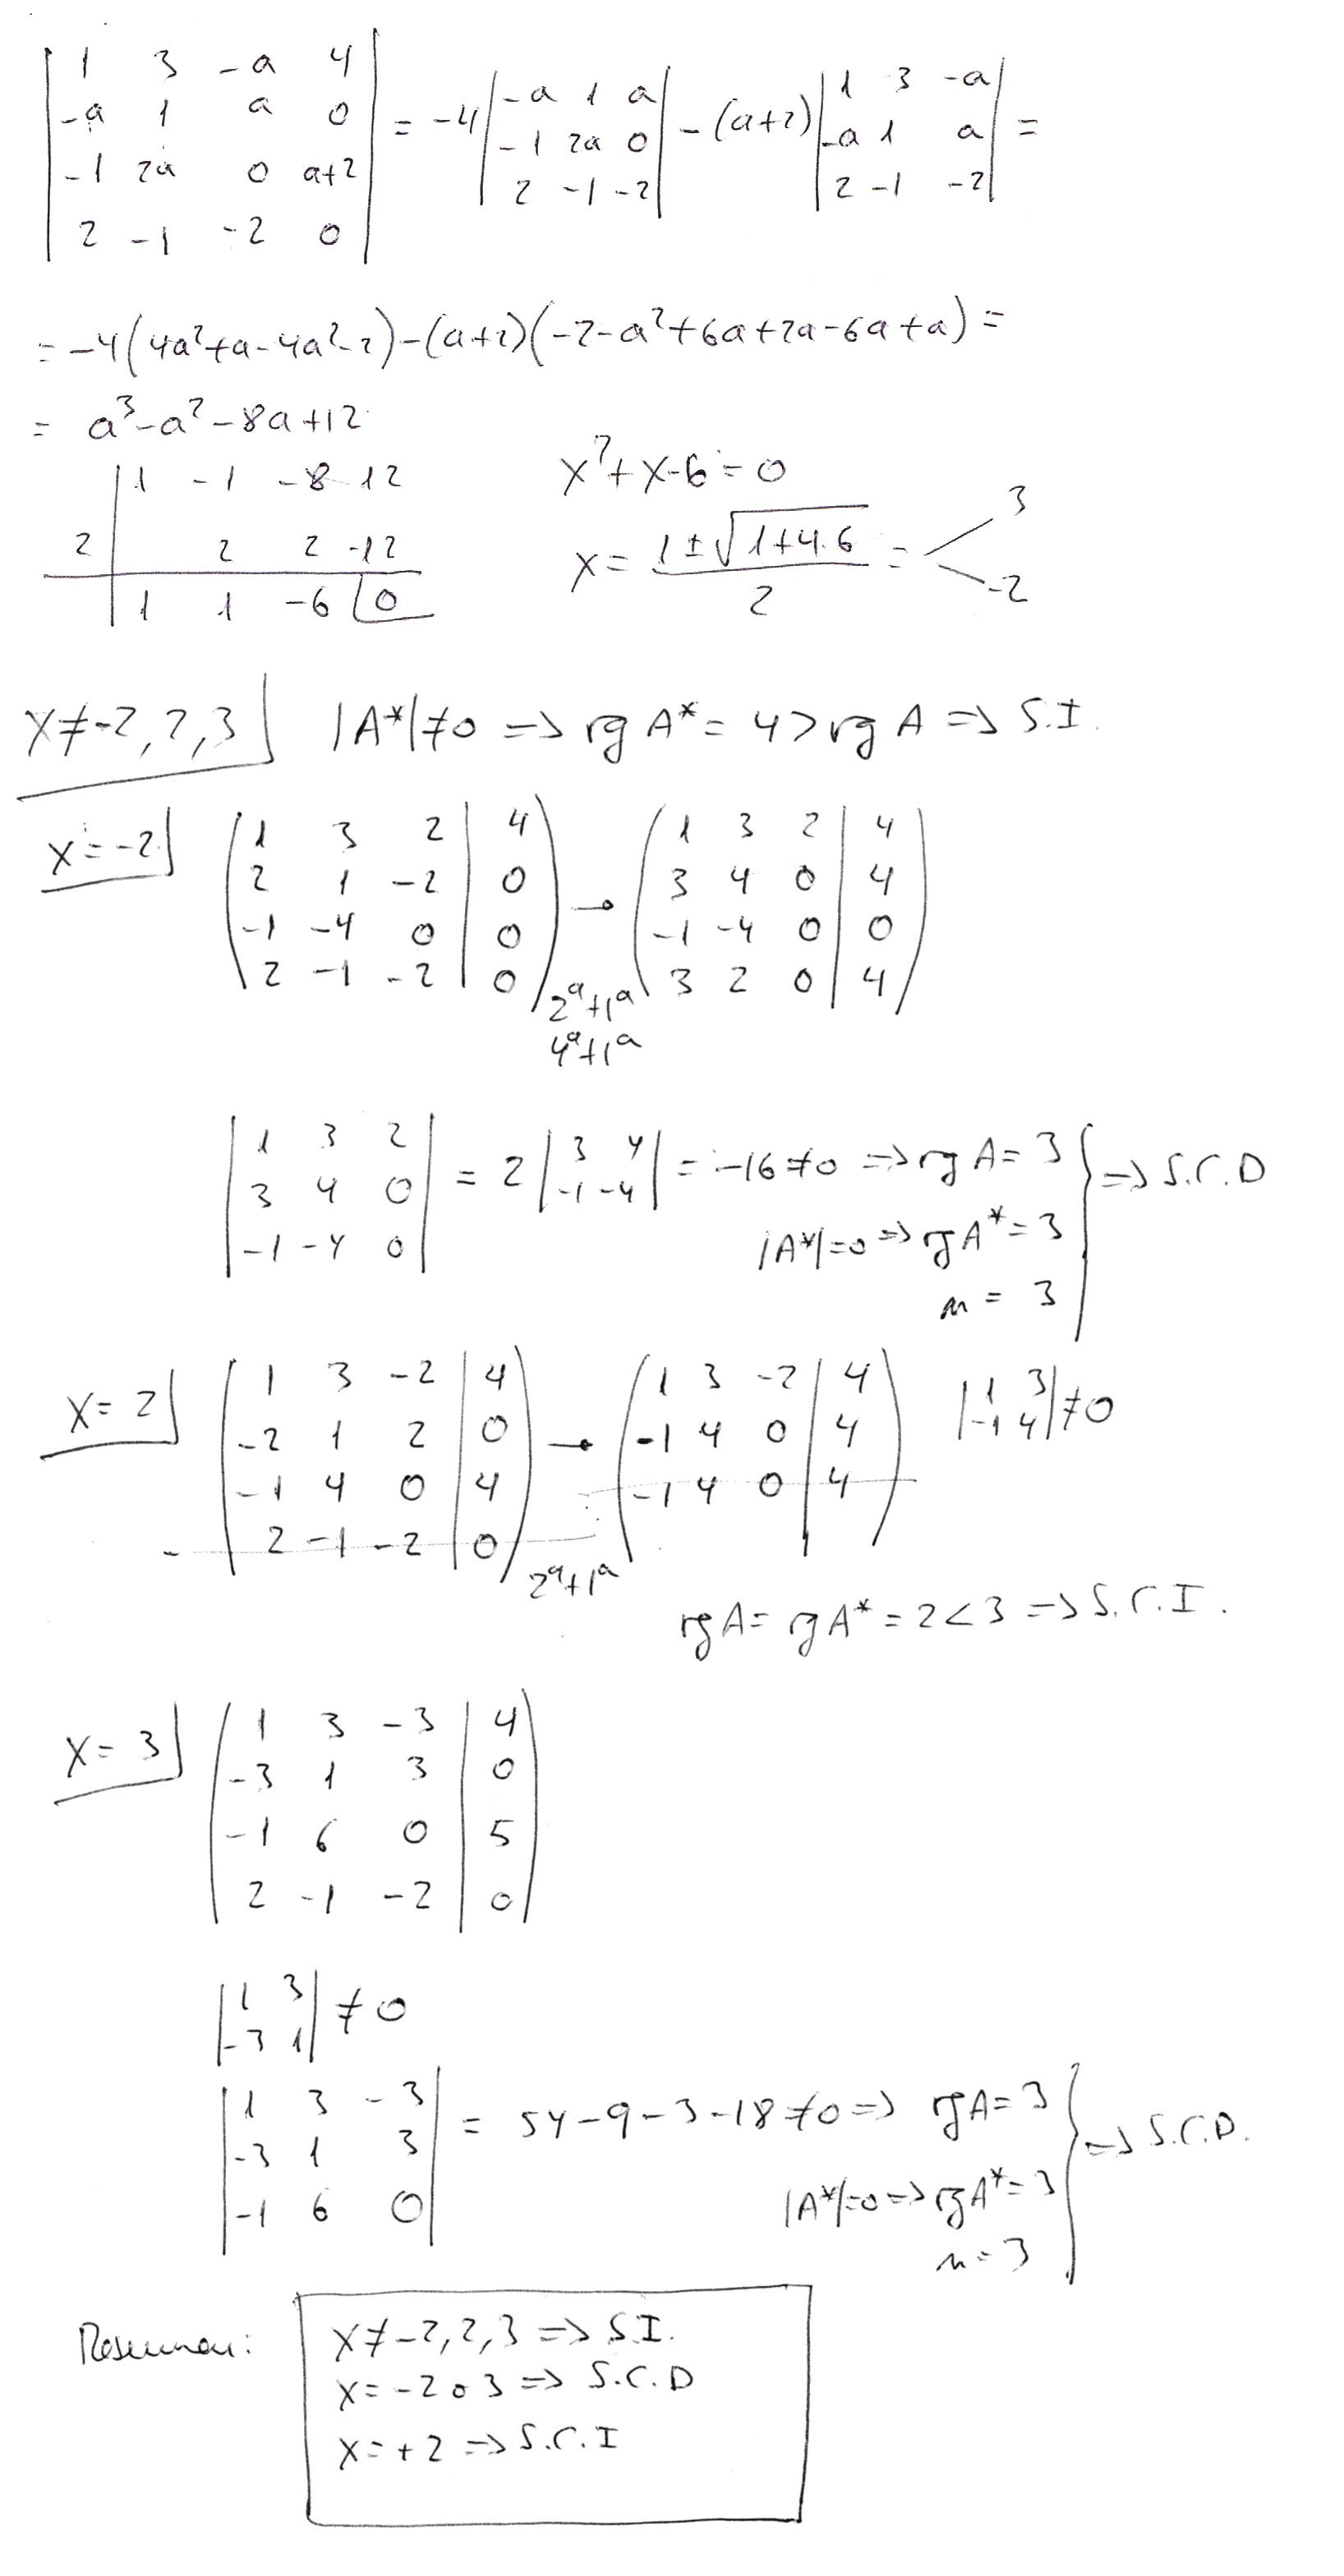 | 1 3 -a 4 |
| -a 1 a 0 |
| -1 2a 0 a+2 |
| 2 -1 -2 0 |
= -4 | -a 1 a |
| -1 2a 0 |
| 2 -1 -2 |
- (a+2) | 1 3 -a |
| -a 1 a |
| 2 -1 -2 | =
= -4(4a²+a-4a²-2)-(a+2)(-2-a²+6a+2a-6a+a) =
= a³-a²-8a+12
1 -1 -8 12
2 | 2 2 -12
1 1 -6 |0
x²+x-6=0
x = (1±√(1+4·6))/2 = < 3
-2
x≠-2,2,3 | |A*|≠0 => rg A* = 4 > rg A => S.I.
x=-2 | ( 1 3 2 | 4 ) → ( 1 3 2 | 4 )
( 2 1 -2 | 0 ) ( 3 4 0 | 4 )
( -1 -4 0 | 0 ) ( -1 -4 0 | 0 )
( 2 -1 -2 | 0 ) ( 3 2 0 | 4 )
2ª+1ª
4ª+1ª
| 1 3 2 |
| 3 4 0 |
| -1 -4 0 |
= 2 | 3 4 |
| -1 -4 | = -16≠0 => rg A = 3 } => S.C.D
|A*|=0 => rg A* = 3
n = 3
x=2 | ( 1 3 -2 | 4 ) → ( 1 3 -2 | 4 )
( -2 1 2 | 0 ) ( -1 4 0 | 4 )
( -1 4 0 | 4 ) ( -1 4 0 | 4 )
( 2 -1 -2 | 0 )
2ª+1ª
| 1 3 |
| -1 4 | ≠0
rg A = rg A* = 2 < 3 => S.C.I.
x=3 | ( 1 3 -3 | 4 )
( -3 1 3 | 0 )
( -1 6 0 | 5 )
( 2 -1 -2 | 0 )
| 1 3 |
| -3 1 | ≠0
| 1 3 -3 |
| -3 1 3 |
| -1 6 0 |
= 54-9-3-18≠0 => rg A = 3 } => S.C.D.
|A*|=0 => rg A* = 3
n = 3
Resumen:
x≠-2,2,3 => S.I.
x=-2 o 3 => S.C.D
x=+2 => S.C.I